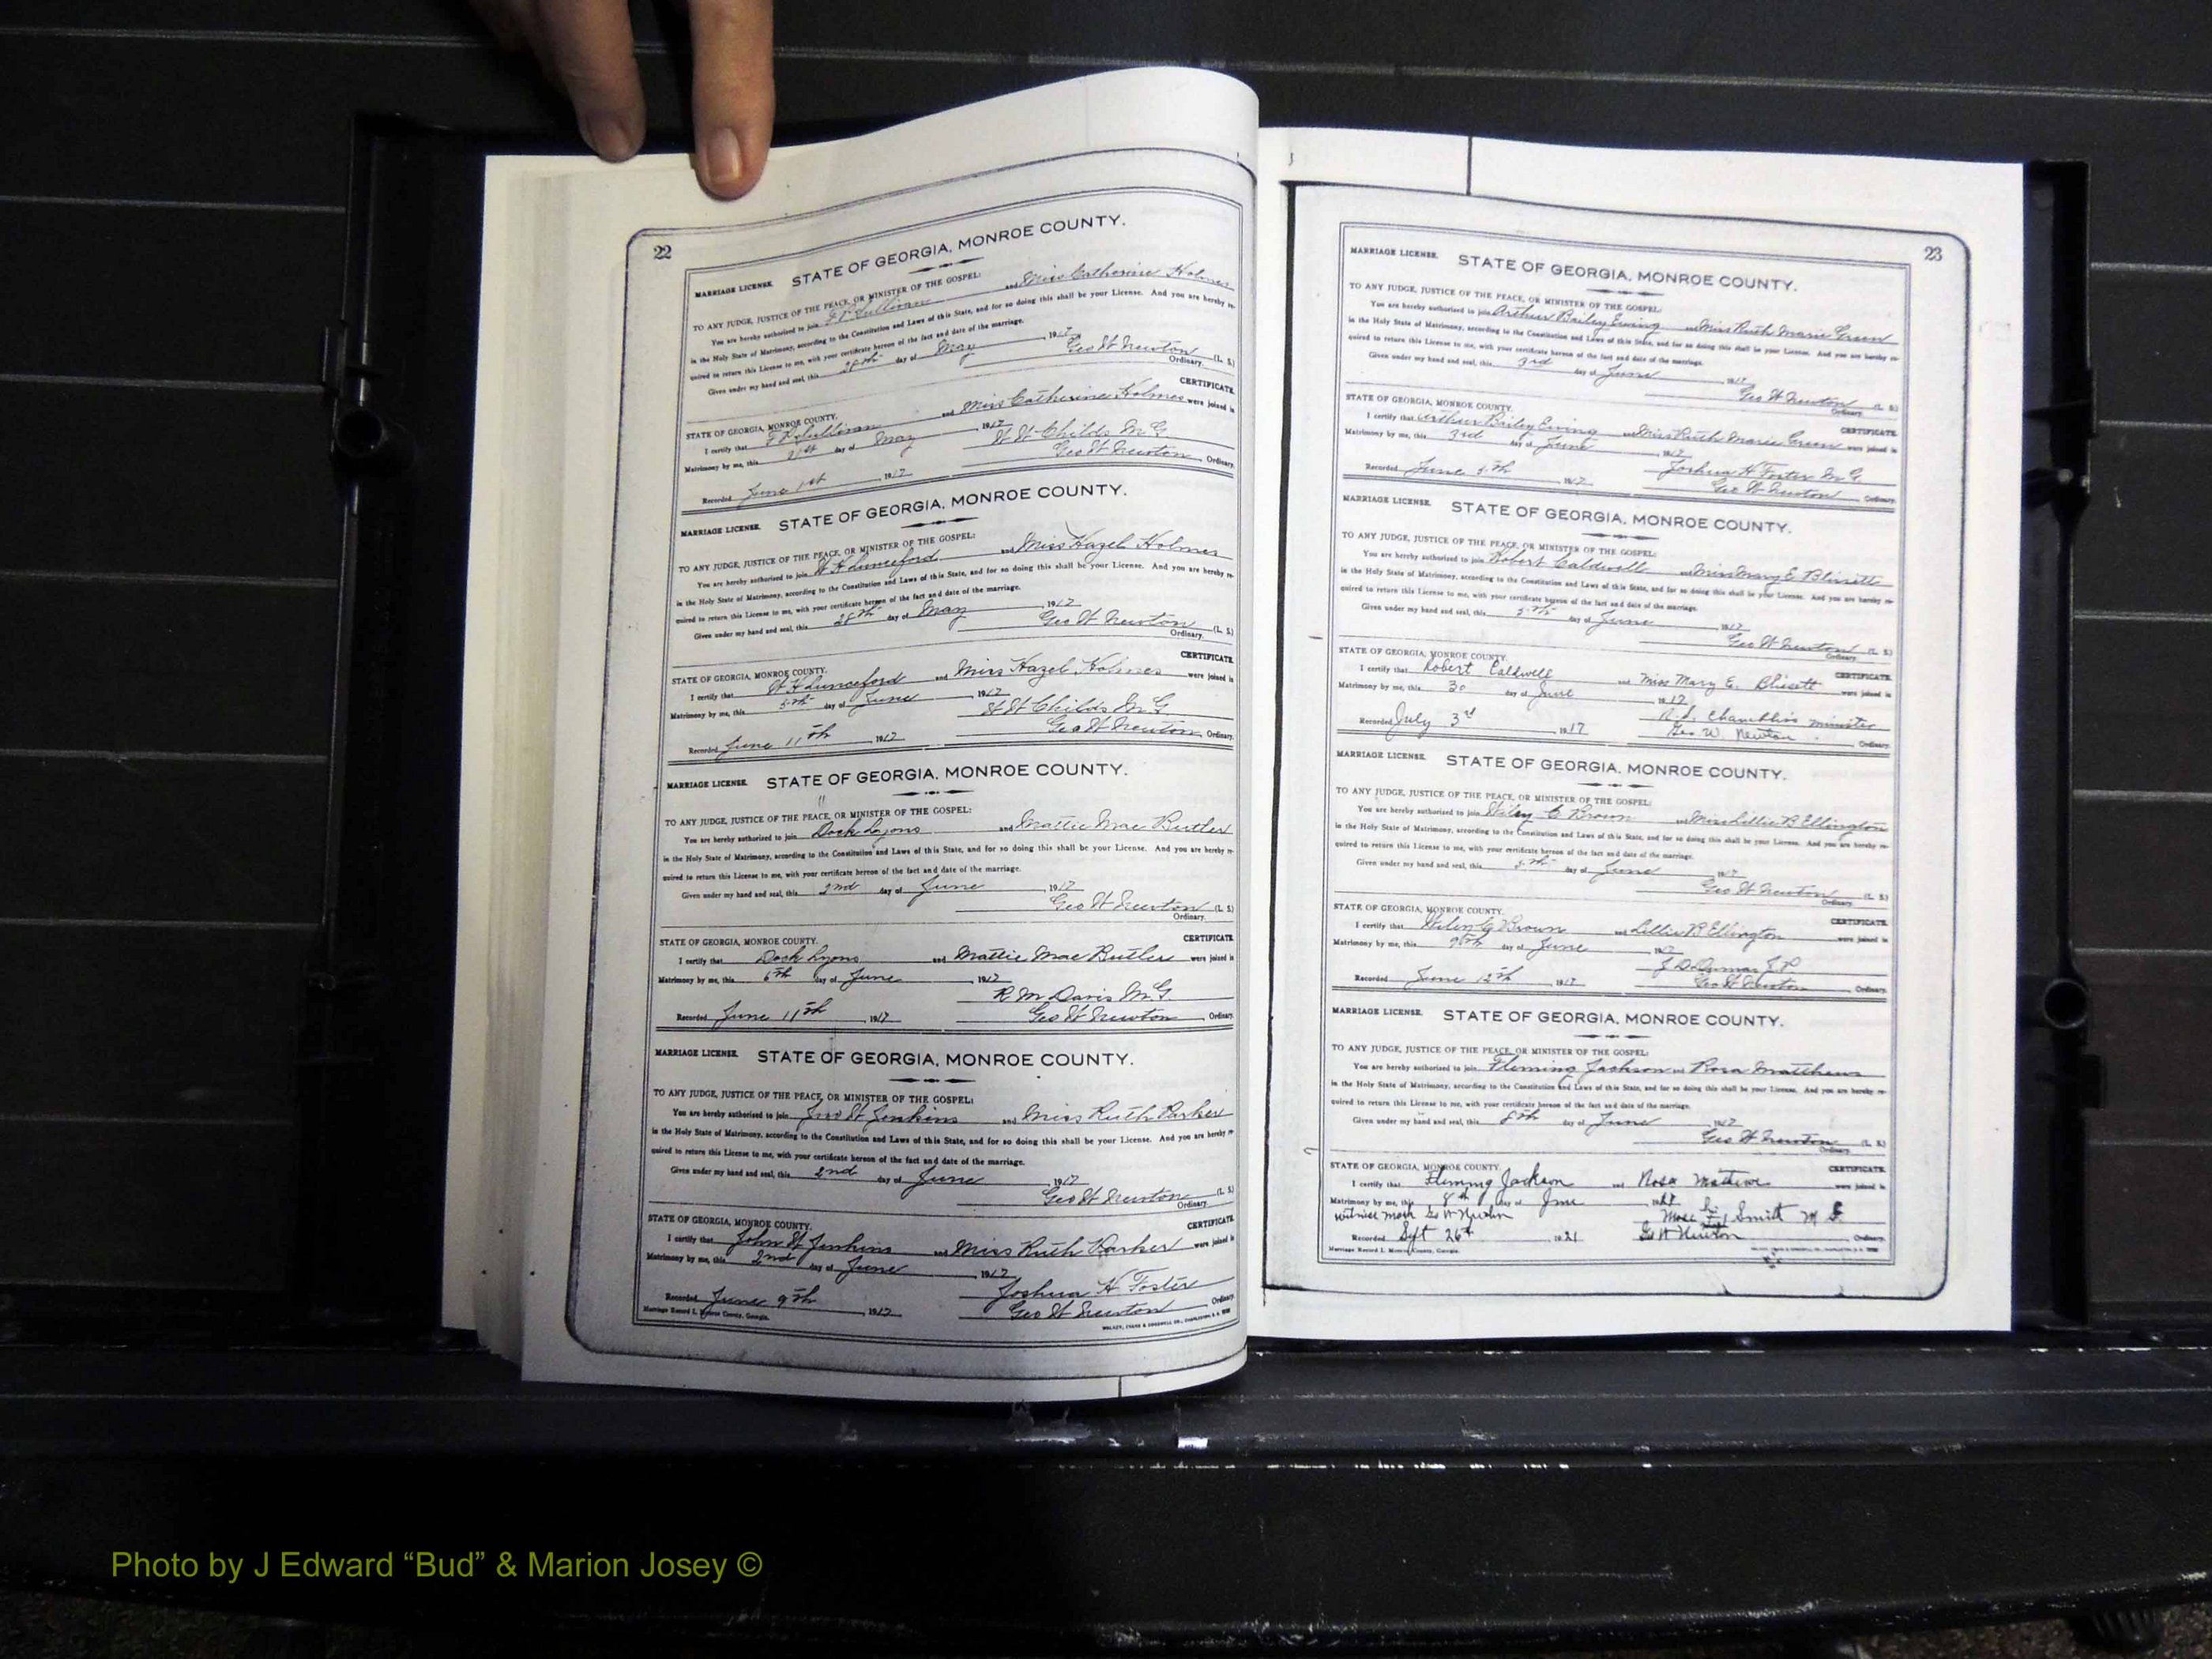 22
MARRIAGE LICENSE. STATE OF GEORGIA, MONROE COUNTY.
TO ANY JUDGE, JUSTICE OF THE PEACE, OR MINISTER OF THE GOSPEL:
You are hereby authorized to join Sullivan and Miss Catherine Holmes
in the Holy State of Matrimony, according to the Constitution and Laws of this State, and for so doing this shall be your License. And you are hereby re-
quired to return this License to me, with your certificate hereon of the fact and date of the marriage.
Given under my hand and seal, this 28th day of May, 1917
Geo W Newton (L. S.)
Ordinary.
STATE OF GEORGIA, MONROE COUNTY. CERTIFICATE.
I certify that Sullivan and Miss Catherine Holmes were joined in
Matrimony by me, this 31st day of May, 1917
W W Childs M G
Recorded June 1st, 1917 Geo W Newton, Ordinary.
MARRIAGE LICENSE. STATE OF GEORGIA, MONROE COUNTY.
TO ANY JUDGE, JUSTICE OF THE PEACE, OR MINISTER OF THE GOSPEL:
You are hereby authorized to join W H Lunceford and Miss Hazel Holmes
in the Holy State of Matrimony, according to the Constitution and Laws of this State, and for so doing this shall be your License. And you are hereby re-
quired to return this License to me, with your certificate hereon of the fact and date of the marriage.
Given under my hand and seal, this 28th day of May, 1917
Geo W Newton (L. S.)
Ordinary.
STATE OF GEORGIA, MONROE COUNTY. CERTIFICATE.
I certify that W H Lunceford and Miss Hazel Holmes were joined in
Matrimony by me, this 5th day of June, 1917
W W Childs M G
Recorded June 11th, 1917 Geo W Newton, Ordinary.
MARRIAGE LICENSE. STATE OF GEORGIA, MONROE COUNTY.
TO ANY JUDGE, JUSTICE OF THE PEACE, OR MINISTER OF THE GOSPEL:
You are hereby authorized to join Dock Lyons and Mattie Mae Butler
in the Holy State of Matrimony, according to the Constitution and Laws of this State, and for so doing this shall be your License. And you are hereby re-
quired to return this License to me, with your certificate hereon of the fact and date of the marriage.
Given under my hand and seal, this 2nd day of June, 1917
Geo W Newton (L. S.)
Ordinary.
STATE OF GEORGIA, MONROE COUNTY. CERTIFICATE.
I certify that Dock Lyons and Mattie Mae Butler were joined in
Matrimony by me, this 6th day of June, 1917
R M Davis M G
Recorded June 11th, 1917 Geo W Newton, Ordinary.
MARRIAGE LICENSE. STATE OF GEORGIA, MONROE COUNTY.
TO ANY JUDGE, JUSTICE OF THE PEACE, OR MINISTER OF THE GOSPEL:
You are hereby authorized to join Jno W Jenkins and Miss Ruth Parker
in the Holy State of Matrimony, according to the Constitution and Laws of this State, and for so doing this shall be your License. And you are hereby re-
quired to return this License to me, with your certificate hereon of the fact and date of the marriage.
Given under my hand and seal, this 2nd day of June, 1917
Geo W Newton (L. S.)
Ordinary.
STATE OF GEORGIA, MONROE COUNTY. CERTIFICATE.
I certify that John W Jenkins and Miss Ruth Parker were joined in
Matrimony by me, this 2nd day of June, 1917
Joshua H Foster
Recorded June 9th, 1917 Geo W Newton, Ordinary.
Marriage Record L Monroe County, Georgia. WALKER, EVANS & COGSWELL CO., CHARLESTON, S. C.
23
MARRIAGE LICENSE. STATE OF GEORGIA, MONROE COUNTY.
TO ANY JUDGE, JUSTICE OF THE PEACE, OR MINISTER OF THE GOSPEL:
You are hereby authorized to join Arthur Bailey Ewing and Miss Ruth Marie Green
in the Holy State of Matrimony, according to the Constitution and Laws of this State, and for so doing this shall be your License. And you are hereby re-
quired to return this License to me, with your certificate hereon of the fact and date of the marriage.
Given under my hand and seal, this 3rd day of June, 1917
Geo W Newton (L. S.)
Ordinary.
STATE OF GEORGIA, MONROE COUNTY. CERTIFICATE.
I certify that Arthur Bailey Ewing and Miss Ruth Marie Green were joined in
Matrimony by me, this 3rd day of June, 1917
Joshua H Foster M G
Recorded June 5th, 1917 Geo W Newton, Ordinary.
MARRIAGE LICENSE. STATE OF GEORGIA, MONROE COUNTY.
TO ANY JUDGE, JUSTICE OF THE PEACE, OR MINISTER OF THE GOSPEL:
You are hereby authorized to join Robert Caldwell and Miss Mary E Blissette
in the Holy State of Matrimony, according to the Constitution and Laws of this State, and for so doing this shall be your License. And you are hereby re-
quired to return this License to me, with your certificate hereon of the fact and date of the marriage.
Given under my hand and seal, this 5th day of June, 1917
Geo W Newton (L. S.)
Ordinary.
STATE OF GEORGIA, MONROE COUNTY. CERTIFICATE.
I certify that Robert Caldwell and Miss Mary E. Blissett were joined in
Matrimony by me, this 30 day of June, 1917
Chambliss minister
Recorded July 3rd, 1917 Geo. W. Newton, Ordinary.
MARRIAGE LICENSE. STATE OF GEORGIA, MONROE COUNTY.
TO ANY JUDGE, JUSTICE OF THE PEACE, OR MINISTER OF THE GOSPEL:
You are hereby authorized to join Wiley C Brown and Miss Lillie B Ellington
in the Holy State of Matrimony, according to the Constitution and Laws of this State, and for so doing this shall be your License. And you are hereby re-
quired to return this License to me, with your certificate hereon of the fact and date of the marriage.
Given under my hand and seal, this 5th day of June, 1917
Geo W Newton (L. S.)
Ordinary.
STATE OF GEORGIA, MONROE COUNTY. CERTIFICATE.
I certify that Wiley C Brown and Lillie B Ellington were joined in
Matrimony by me, this 9th day of June, 1917
J D Dumas J P
Recorded June 12th, 1917 Geo W Newton, Ordinary.
MARRIAGE LICENSE. STATE OF GEORGIA, MONROE COUNTY.
TO ANY JUDGE, JUSTICE OF THE PEACE, OR MINISTER OF THE GOSPEL:
You are hereby authorized to join Fleming Jackson and Rosa Matthews
in the Holy State of Matrimony, according to the Constitution and Laws of this State, and for so doing this shall be your License. And you are hereby re-
quired to return this License to me, with your certificate hereon of the fact and date of the marriage.
Given under my hand and seal, this 8th day of June, 1917
Geo W Newton (L. S.)
Ordinary.
STATE OF GEORGIA, MONROE COUNTY. CERTIFICATE.
I certify that Fleming Jackson and Rosa were joined in
Matrimony by me, this 8th day of June
witness mark Geo W Newton Mose his Smith M G
Recorded Sept 26th, 1921 G W Newton Ordinary.
Marriage Record L Monroe County, Georgia.
Photo by J Edward “Bud” & Marion Josey ©